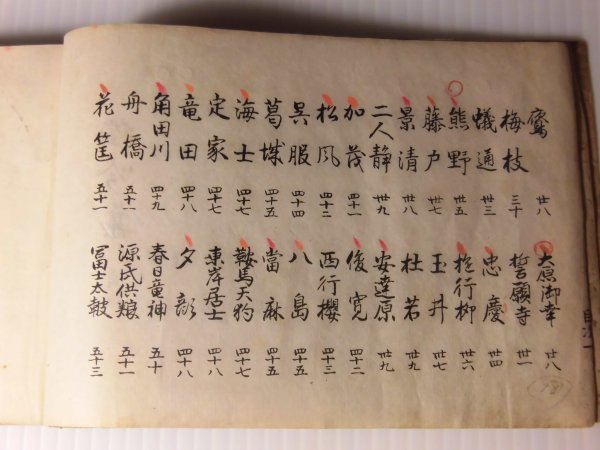 廿八
梅枝 三十
蟻通 卅三
熊野 卅五
藤戸 卅七
景清 卅八
二人静 卅九
加茂 四十一
松風 四十二
呉服 四十四
葛城 四十五
海士 四十七
定家 四十七
竜田 四十八
角田川 四十九
舟橋 五十一
花筐 五十一
大原御幸 廿八
誓願寺 卅一
忠慶 卅四
遊行柳 卅六
玉井 卅七
杜若 卅九
安達原 卅九
俊寛 四十二
西行櫻 四十三
八島 四十四
當麻 四十五
鞍馬天狗 四十七
東岸居士 四十八
夕顔 四十八
春日竜神 五十
源氏供養 五十一
冨士太鼓 五十三